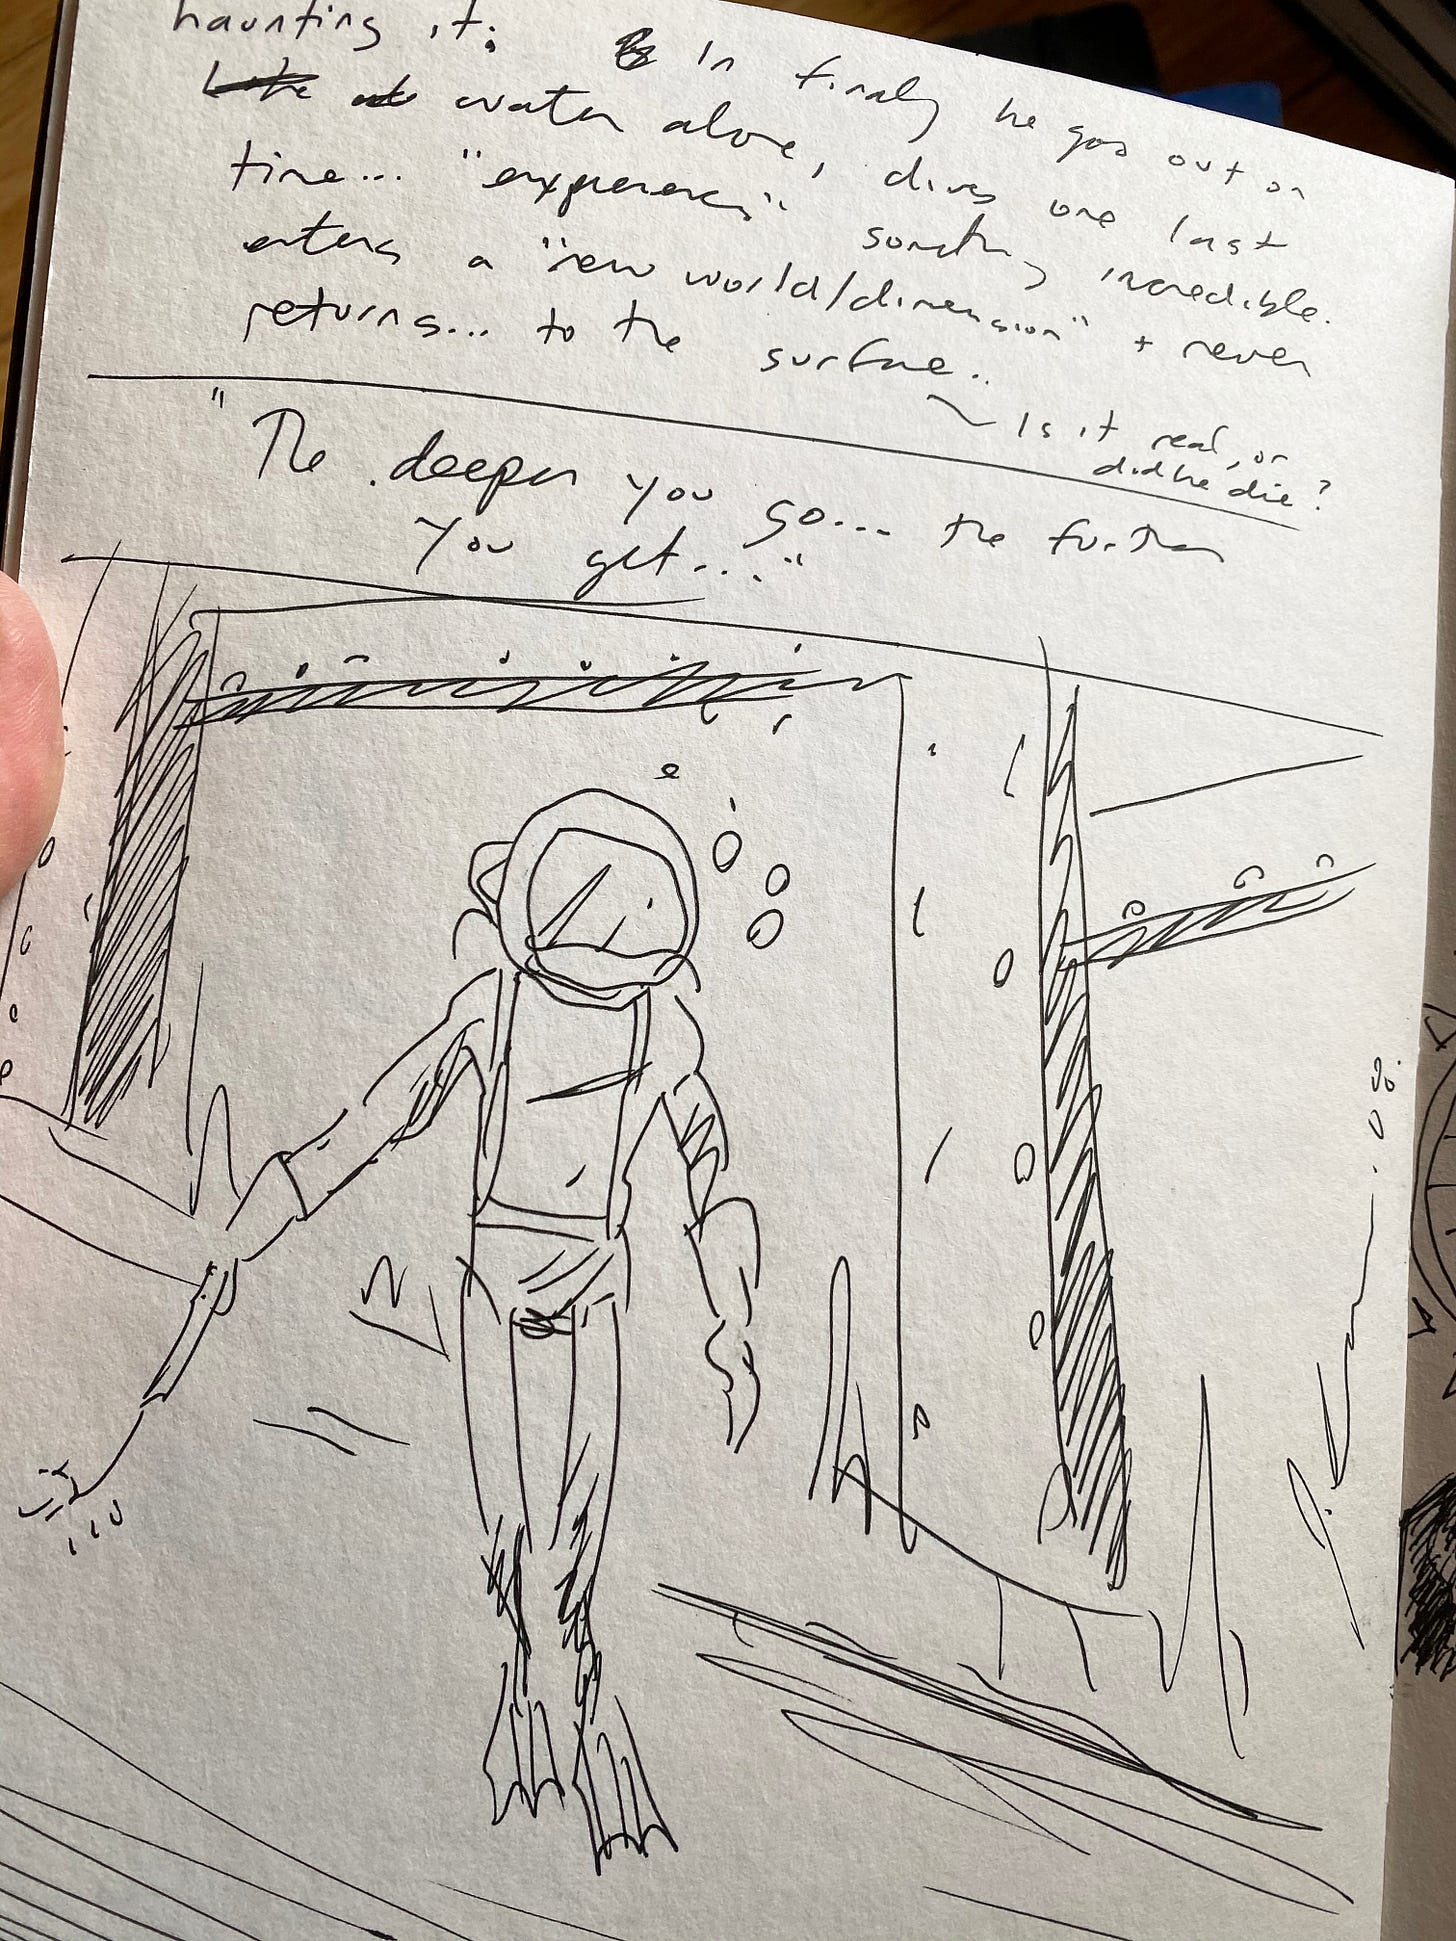 haunting it. In finaly he goes out on
water alone, dives one last
time... "experiences" something incredible.
enters a "new world/dimension" + never
returns... to the surface..
Is it real, or
did he die?
"The deeper you go... the further
you get...."